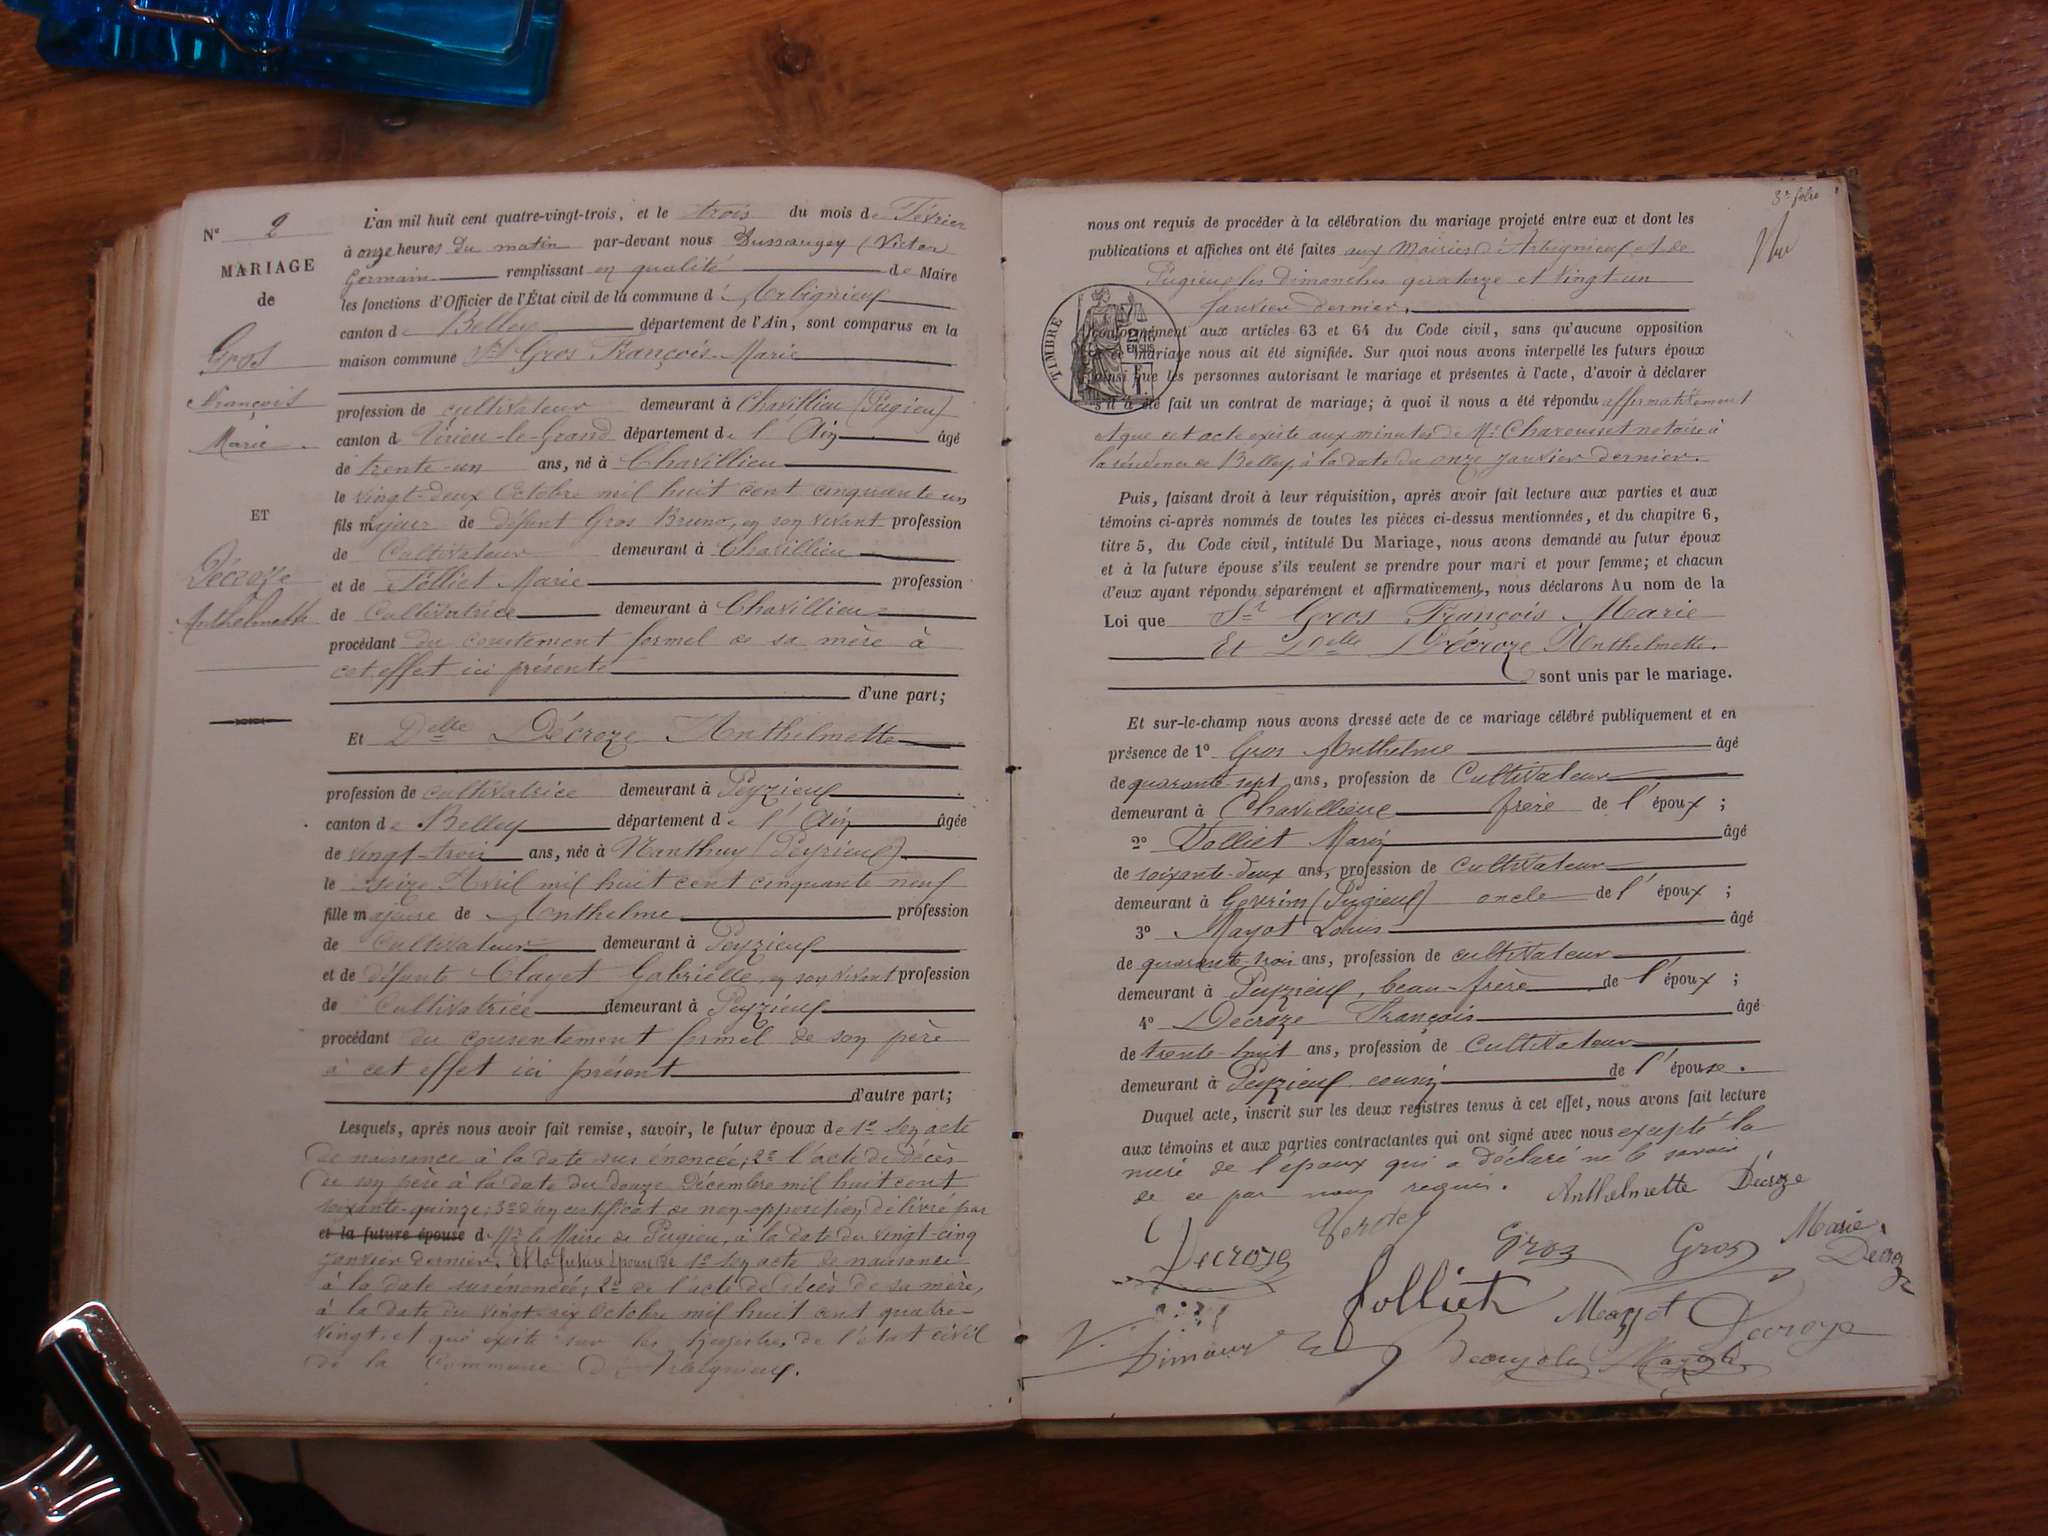 N° 2
MARIAGE
de
Gros
François
Marie
ET
Décroze
Anthelmette
L'an mil huit cent quatre-vingt-trois, et le trois du mois de Février
à onze heures du matin par-devant nous Dussaugey (Victor
Germain remplissant en qualité de Maire
les fonctions d'Officier de l'État civil de la commune d'Arbignieu
canton de Belley département de l'Ain, sont comparus en la
maison commune Sr Gros François Marie
profession de cultivateur demeurant à Chavillieu (Pugieu)
canton d Virieu-le-Grand département de l'Ain âgé
de trente-un ans, né à Chavillieu
le vingt-deux Octobre mil huit cent cinquante un
fils majeur de défunt Gros Bruno, en son vivant profession
de Cultivateur demeurant à Chavillieu
et de Folliet Marie profession
de Cultivatrice demeurant à Chavillieu
procédant du constement formel de sa mère à
cet effet ici présente
d'une part;
Et Delle Décroze Anthelmette
profession de cultivatrice demeurant à Peyzieu
canton de Belley département de l'Ain âgée
de vingt-trois ans, née à Nanthuy (Peyzieu)
le seize Avril mil huit cent cinquante neuf
fille majeure de Anthelme profession
de Cultivateur demeurant à Peyzieu
et de défunte Clayet Gabrielle, en son vivant profession
de Cultivatrice demeurant à Peyzieu
procédant du consentement formel de son père
à cet effet ici présent
d'autre part;
Lesquels, après nous avoir fait remise, savoir, le futur époux de 1° son acte
de naissance à la date sus énoncée; 2° l'acte de décès
de son père à la date du douze Décembre mil huit cent
soixante-quinze; 3° d'un certificat de non-opposition délivré par
et la future épouse d Mr le Maire de Pugieu, à la date du vingt-cinq
janvier dernier. Et la future épouse de 1° son acte de naissance
à la date sus énoncée; 2° de l'acte de décès de sa mère,
à la date du vingt-six Octobre mil huit cent quatre-
vingt, et qui existe sur les registres de l'état civil
de la Commune d'Arbignieu.
3e folio
nous ont requis de procéder à la célébration du mariage projeté entre eux et dont les
publications et affiches ont été faites aux Mairies d'Arbignieu et de
Pugieu les dimanches quatorze et vingt-un
Janvier dernier,
TIMBRE
EN SUS
conformément aux articles 63 et 64 du Code civil, sans qu'aucune opposition
à ce mariage nous ait été signifiée. Sur quoi nous avons interpellé les futurs époux
ainsi que les personnes autorisant le mariage et présentes à l'acte, d'avoir à déclarer
s'il a été fait un contrat de mariage; à quoi il nous a été répondu affirmativement
et que cet acte existe aux minutes de Me notaire à
la résidence de Belley, à la date du onze janvier dernier.
Puis, faisant droit à leur réquisition, après avoir fait lecture aux parties et aux
témoins ci-après nommés de toutes les pièces ci-dessus mentionnées, et du chapitre 6,
titre 5, du Code civil, intitulé Du Mariage, nous avons demandé au futur époux
et à la future épouse s'ils veulent se prendre pour mari et pour femme; et chacun
d'eux ayant répondu séparément et affirmativement, nous déclarons Au nom de la
Loi que Sr Gros François Marie
Et Delle Décroze Anthelmette.
sont unis par le mariage.
Et sur-le-champ nous avons dressé acte de ce mariage célébré publiquement et en
présence de 1° Gros Anthelme âgé
de quarante sept ans, profession de Cultivateur
demeurant à Chavillieu frère de l'époux;
2° Folliet Marin âgé
de soixante-deux ans, profession de Cultivateur
demeurant à (Pugieu) oncle de l'époux;
3° Mayot Louis âgé
de quarante-trois ans, profession de cultivateur
demeurant à Peyzieu, beau-frère de l'époux;
4° Décroze François âgé
de trente-huit ans, profession de Cultivateur
demeurant à Peyzieu cousin de l'épouse.
Duquel acte, inscrit sur les deux registres tenus à cet effet, nous avons fait lecture
aux témoins et aux parties contractantes qui ont signé avec nous excepté la
mère de l'époux qui a déclaré ne le savoir
de ce par nous requis. Anthelmette Décroze
Decroze Gros Gros Marie
Décroze
Folliet Mayot Decroze